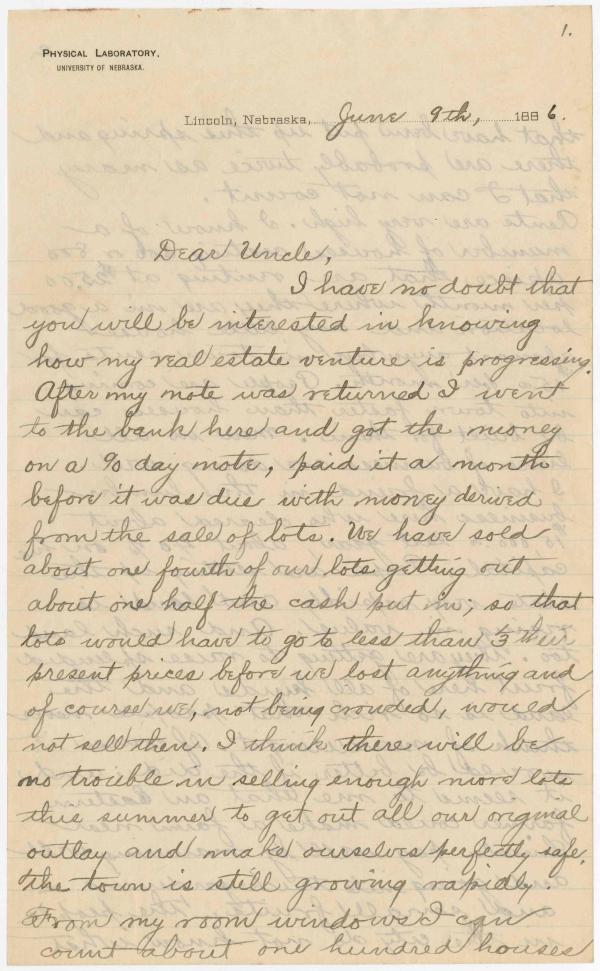 1.
PHYSICAL LABORATORY,
UNIVERSITY OF NEBRASKA.
Lincoln, Nebraska, June 9th, 1886.
Dear Uncle,
I have no doubt that
you will be interested in knowing
how my real estate venture is progressing.
After my note was returned I went
to the bank here and got the money
on a 90 day note, paid it a month
before it was due with money derived
from the sale of lots. We have sold
about one fourth of our lots getting out
about one half the cash put in; so that
lots would have to go to less than 1/3 their
present prices before we lost anything and
of course we, not being crowded, would
not sell then. I think there will be
no trouble in selling enough more lots
this summer to get out all our original
outlay and make ourselves perfectly safe.
The town is still growing rapidly.
From my room windows I can
count about one hundred houses